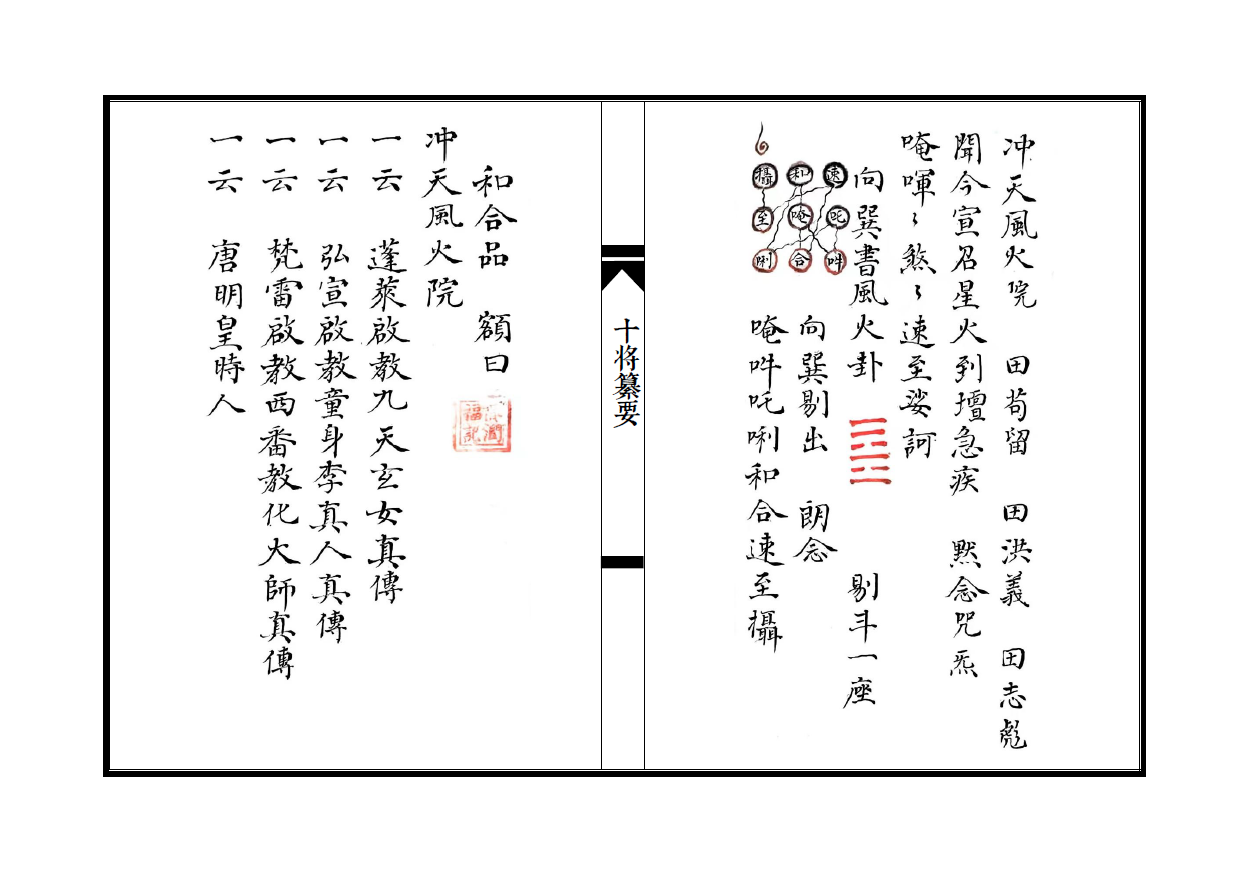 冲天風火院　田苟留　田洪義　田志彪
聞今宣召星火到壇急疾　默念咒炁
唵喗〻煞〻速至娑訶
向巽書風火卦　剔斗一座
向巽剔出　朗念
唵吽吒唎和合速至攝
速 和 攝
吒 唵 至
吽 合 唎
十将纂要
和合品　額曰
冲天風火院
一云　蓬萊啟教九天玄女真傳
一云　弘宣啟教童身李真人真傳
一云　梵雷啟教西番教化大師真傳
一云　唐明皇時人